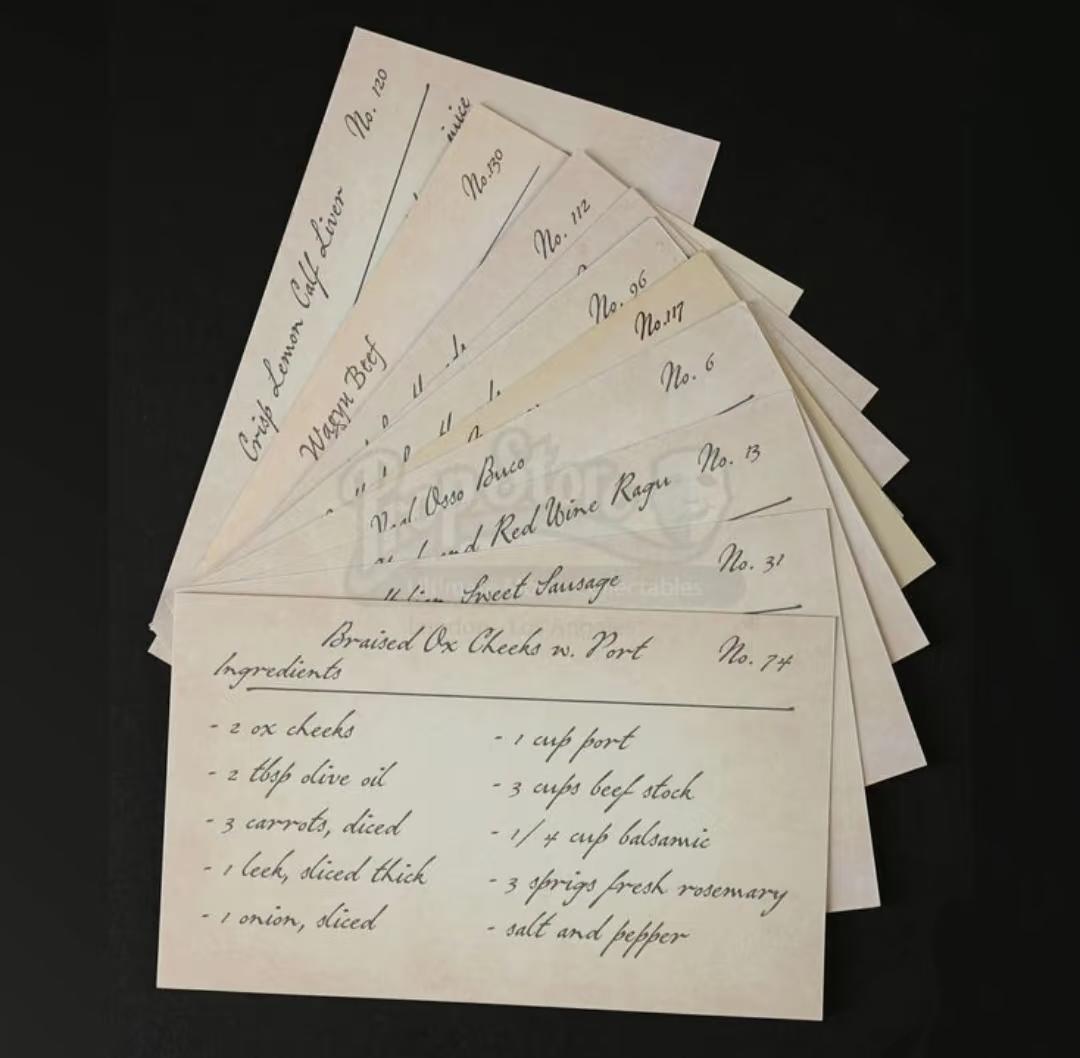 No. 120
Crisp Lemon Calf Liver
juice
No. 130
Wagyu Beef
No. 112
No. 96
No. 117
No. 6
Osso Buco
No. 13
and Red Wine Ragu
No. 31
Sweet Sausage
PropStore
Ultimate Collectables
London Los Angeles
Braised Ox Cheeks w. Port No. 74
Ingredients
- 2 ox cheeks
- 2 tbsp olive oil
- 3 carrots, diced
- 1 leek, sliced thick
- 1 onion, sliced
- 1 cup port
- 3 cups beef stock
- 1/4 cup balsamic
- 3 sprigs fresh rosemary
- salt and pepper